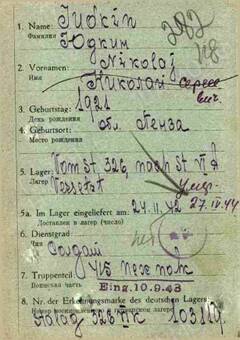 282
1. Name: Judkin
Фамилия Юдкин 118
2. Vornamen: Nikolaj
Имя Николай Сергее
вич.
3. Geburtstag: 1921
День рождения
4. Geburtsort: обл. Пенза
Место рождения
5. Lager: Vom St. 326, nach St VI A
Лагерь versetzt
27.IV.44
5a. Im Lager eingeliefert am: 24.11.42
Доставлен в лагерь (число)
6. Dienstgrad:
Чин Солдат
7. Truppenteil: 415 пех полк
Воинская часть Eing. 10.9.43
8. Nr. der Erkennungsmarke des deutschen Lagers:
Stalag 326 VI K 103119